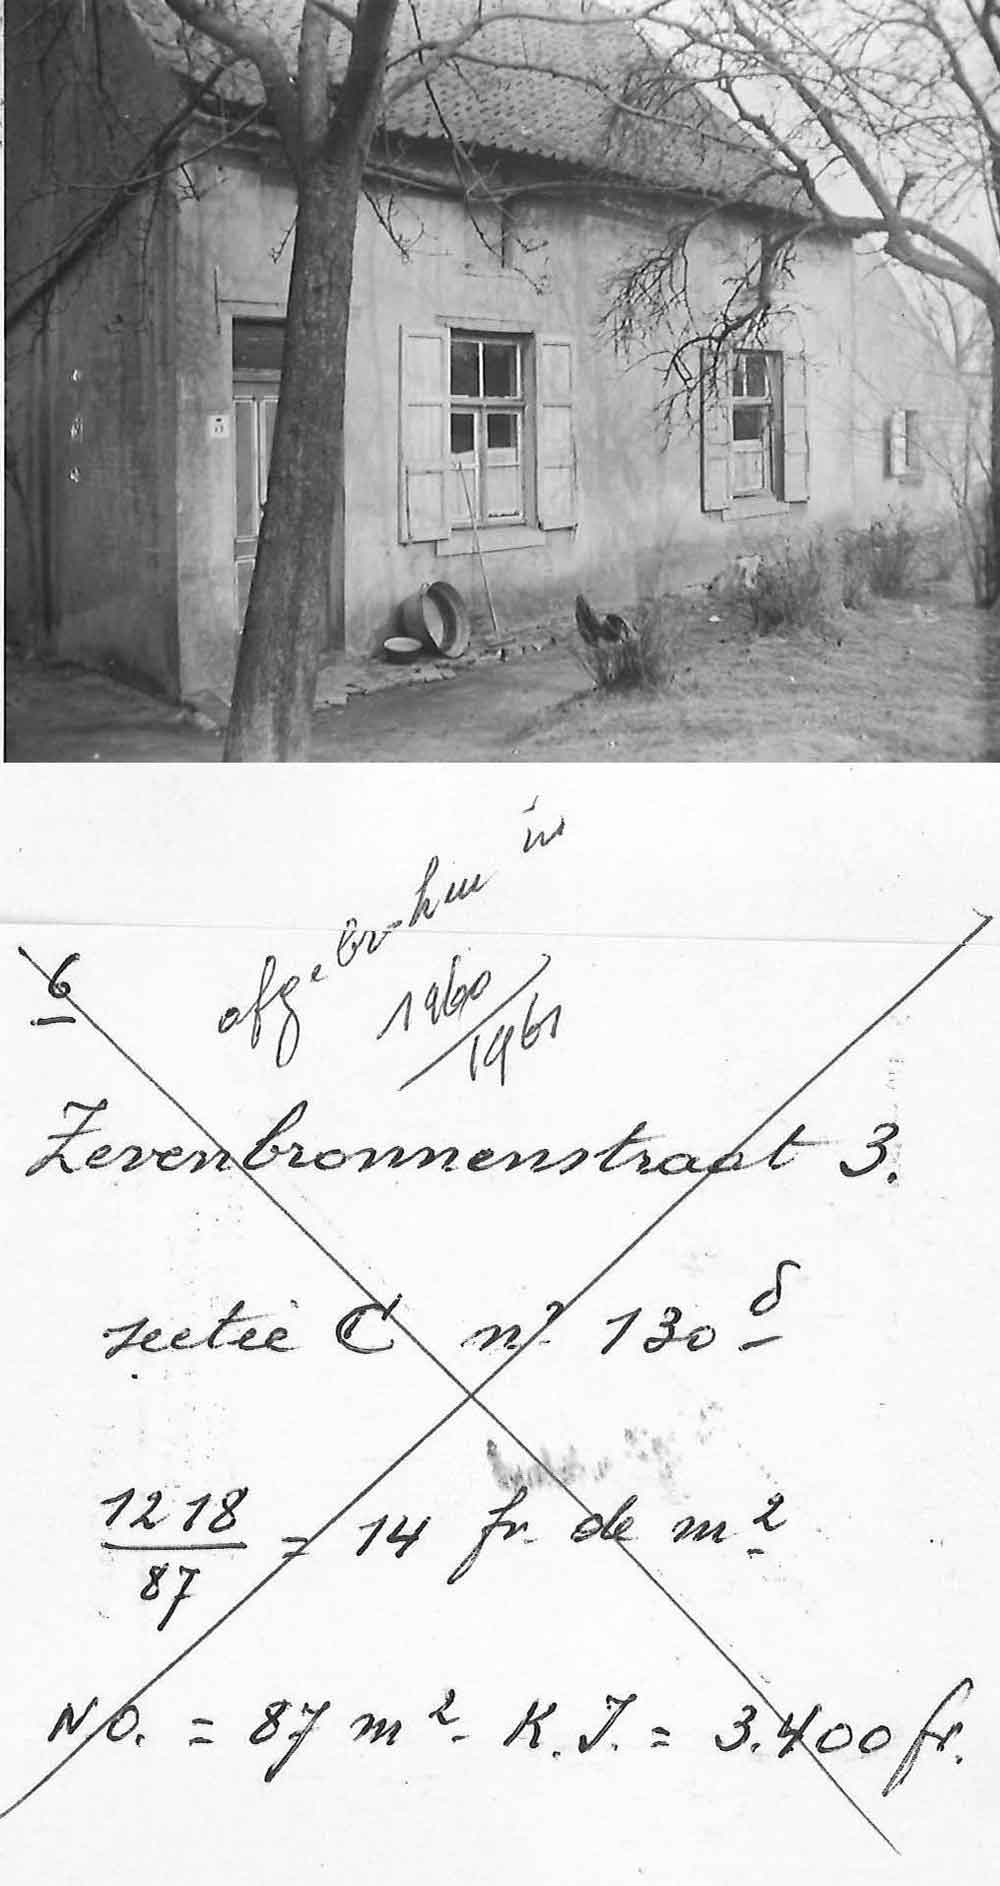 afgebroken in
1960
/1961
6
Zevenbronnenstraat 3.
sectie C n° 130 d
1218
87
= 14 fr. de m²
N.O. = 87 m². K.I. = 3.400 fr.